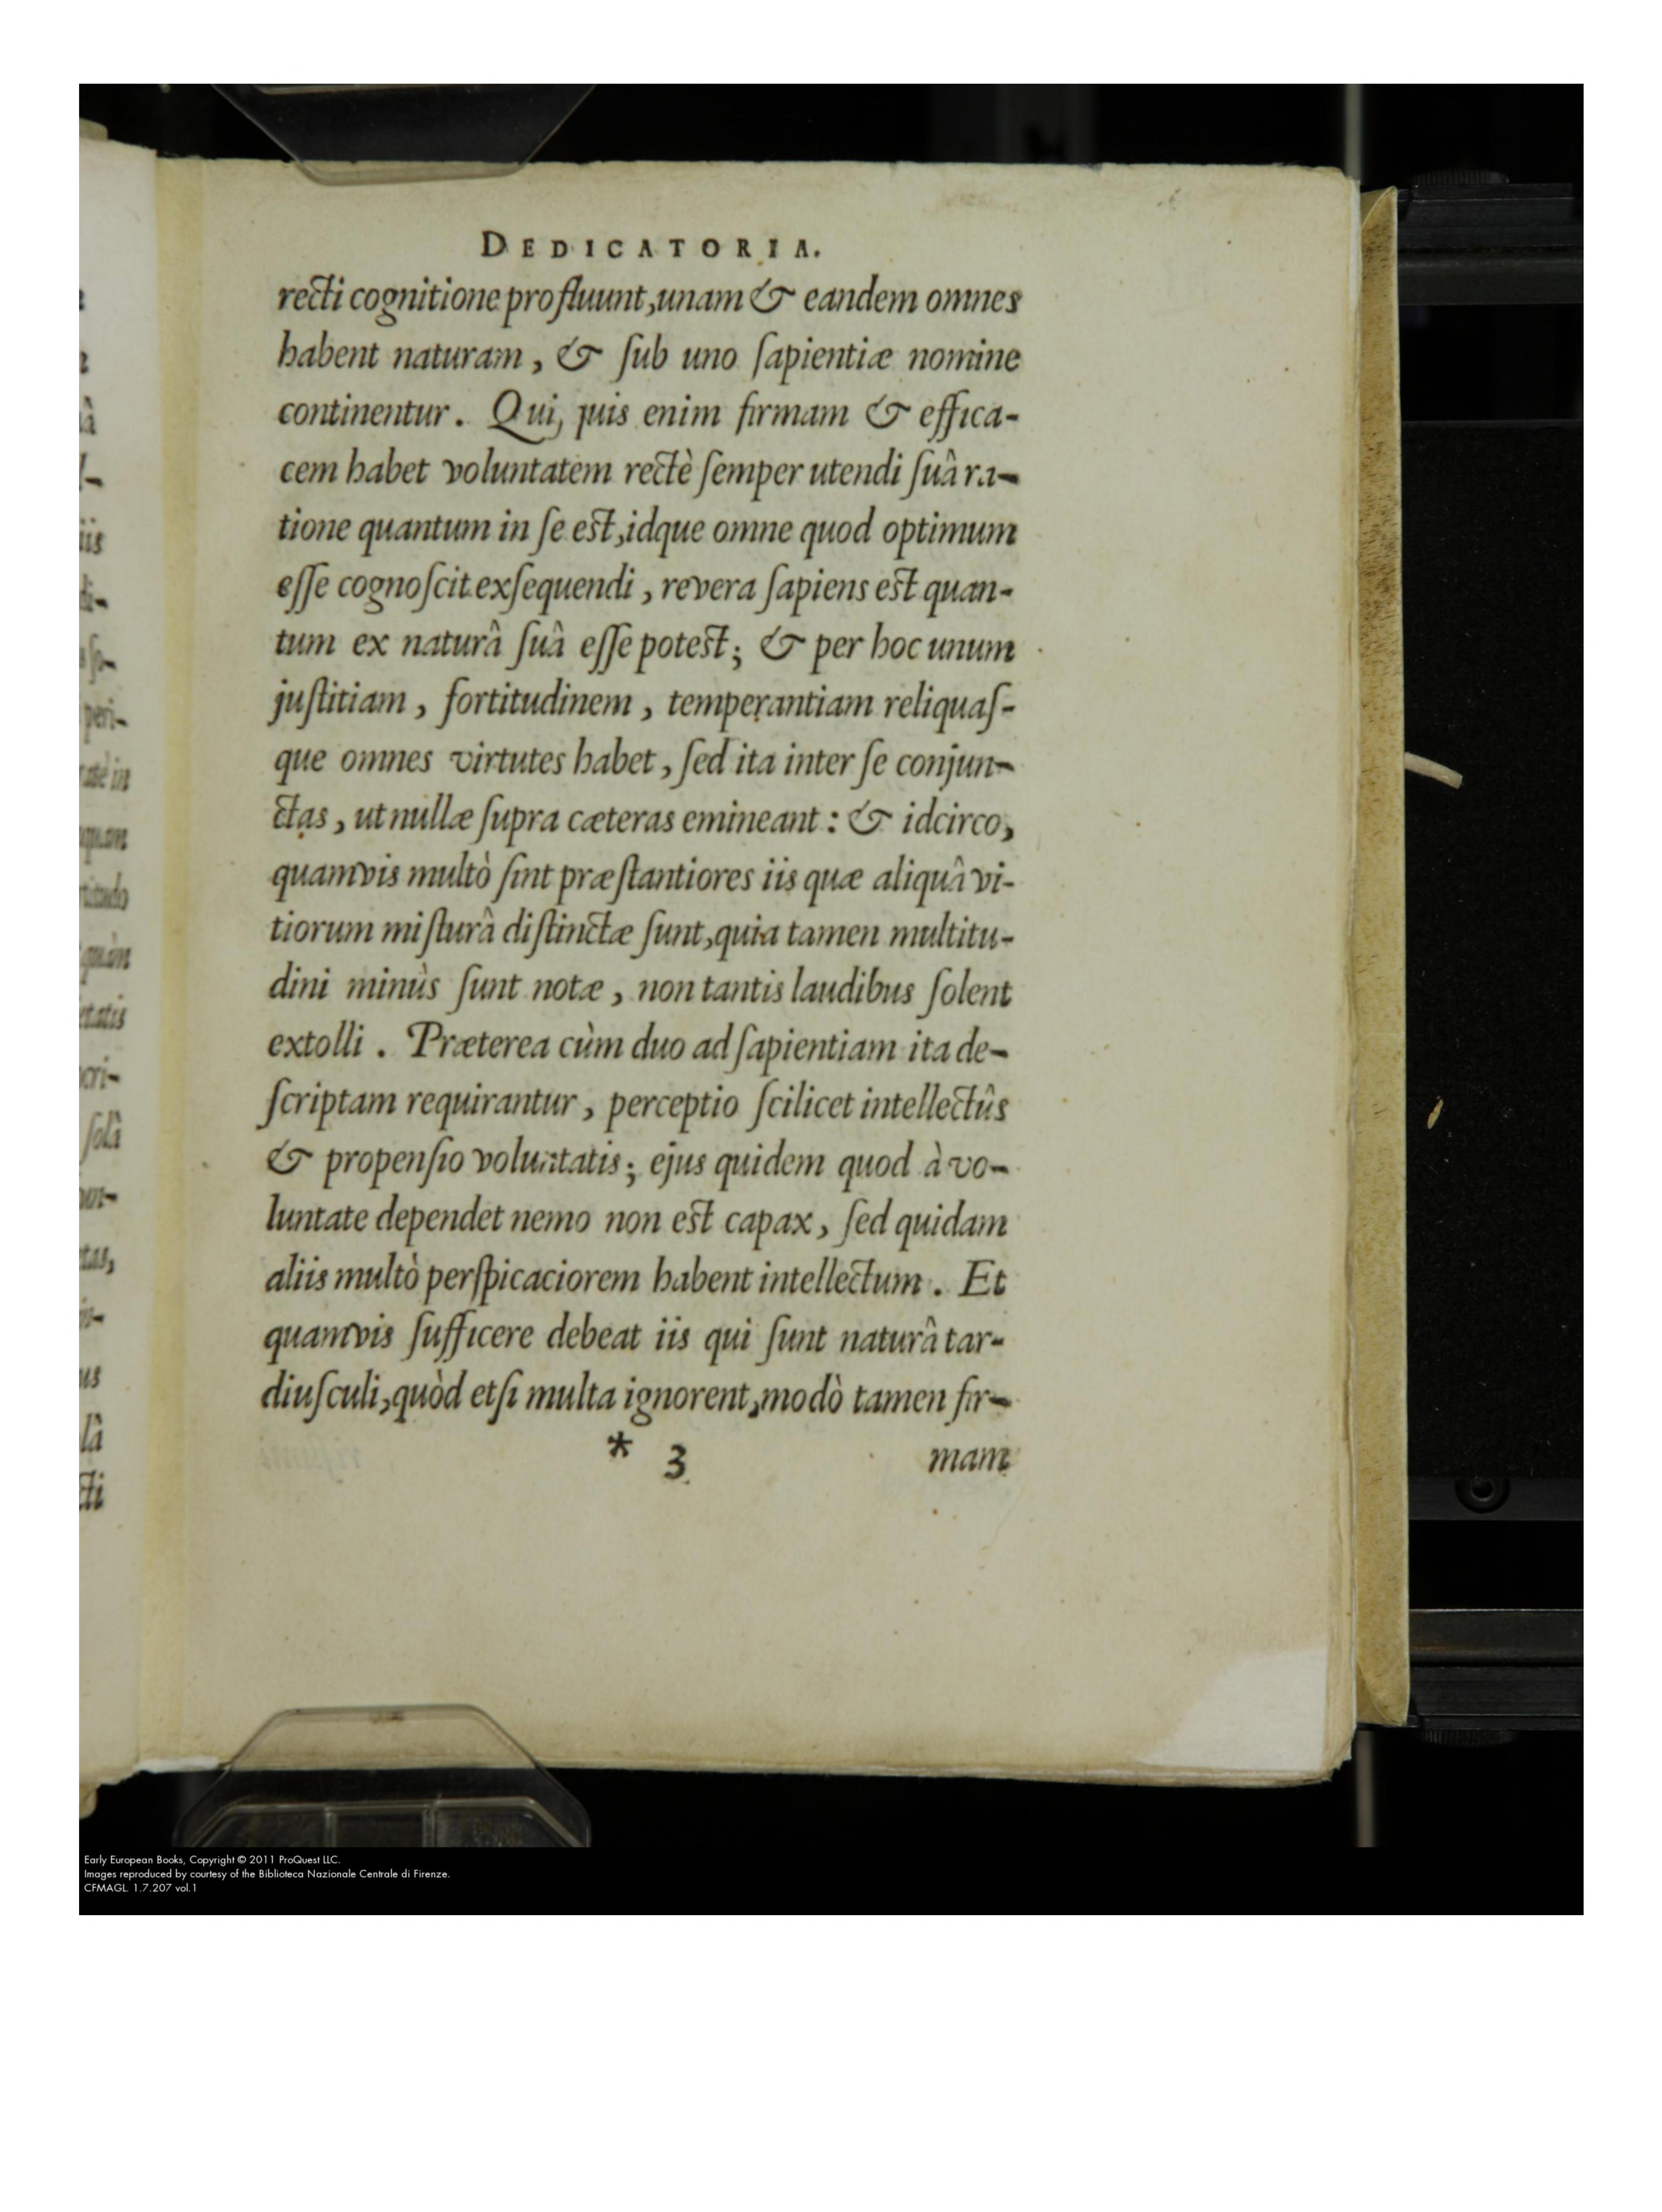 DEDICATORIA.
recti cognitione profluunt, unam & eandem omnes
habent naturam, & ſub uno ſapientiæ nomine
continentur. Quiſquis enim firmam & effica-
cem habet voluntatem rectè ſemper utendi ſuâ ra-
tione quantum in ſe est, idque omne quod optimum
eſſe cognoſcit exſequendi, revera ſapiens est quan-
tum ex naturâ ſuâ eſſe potest; & per hoc unum
juſtitiam, fortitudinem, temperantiam reliquaſ-
que omnes virtutes habet, ſed ita inter ſe conjun-
ctas, ut nullæ ſupra cæteras emineant: & idcirco,
quamvis multò ſint præſtantiores iis quæ aliquâ vi-
tiorum miſturâ diſtinctæ ſunt, quia tamen multitu-
dini minùs ſunt notæ, non tantis laudibus ſolent
extolli. Præterea cùm duo ad ſapientiam ita de-
ſcriptam requirantur, perceptio ſcilicet intellectûs
& propenſio voluntatis; ejus quidem quod à vo-
luntate dependet nemo non est capax, ſed quidam
aliis multò perſpicaciorem habent intellectum. Et
quamvis ſufficere debeat iis qui ſunt naturâ tar-
diuſculi, quòd etſi multa ignorent, modò tamen fir-
* 3 mam
Early European Books, Copyright © 2011 ProQuest LLC.
Images reproduced by courtesy of the Biblioteca Nazionale Centrale di Firenze.
CFMAGL. 1.7.207 vol.1